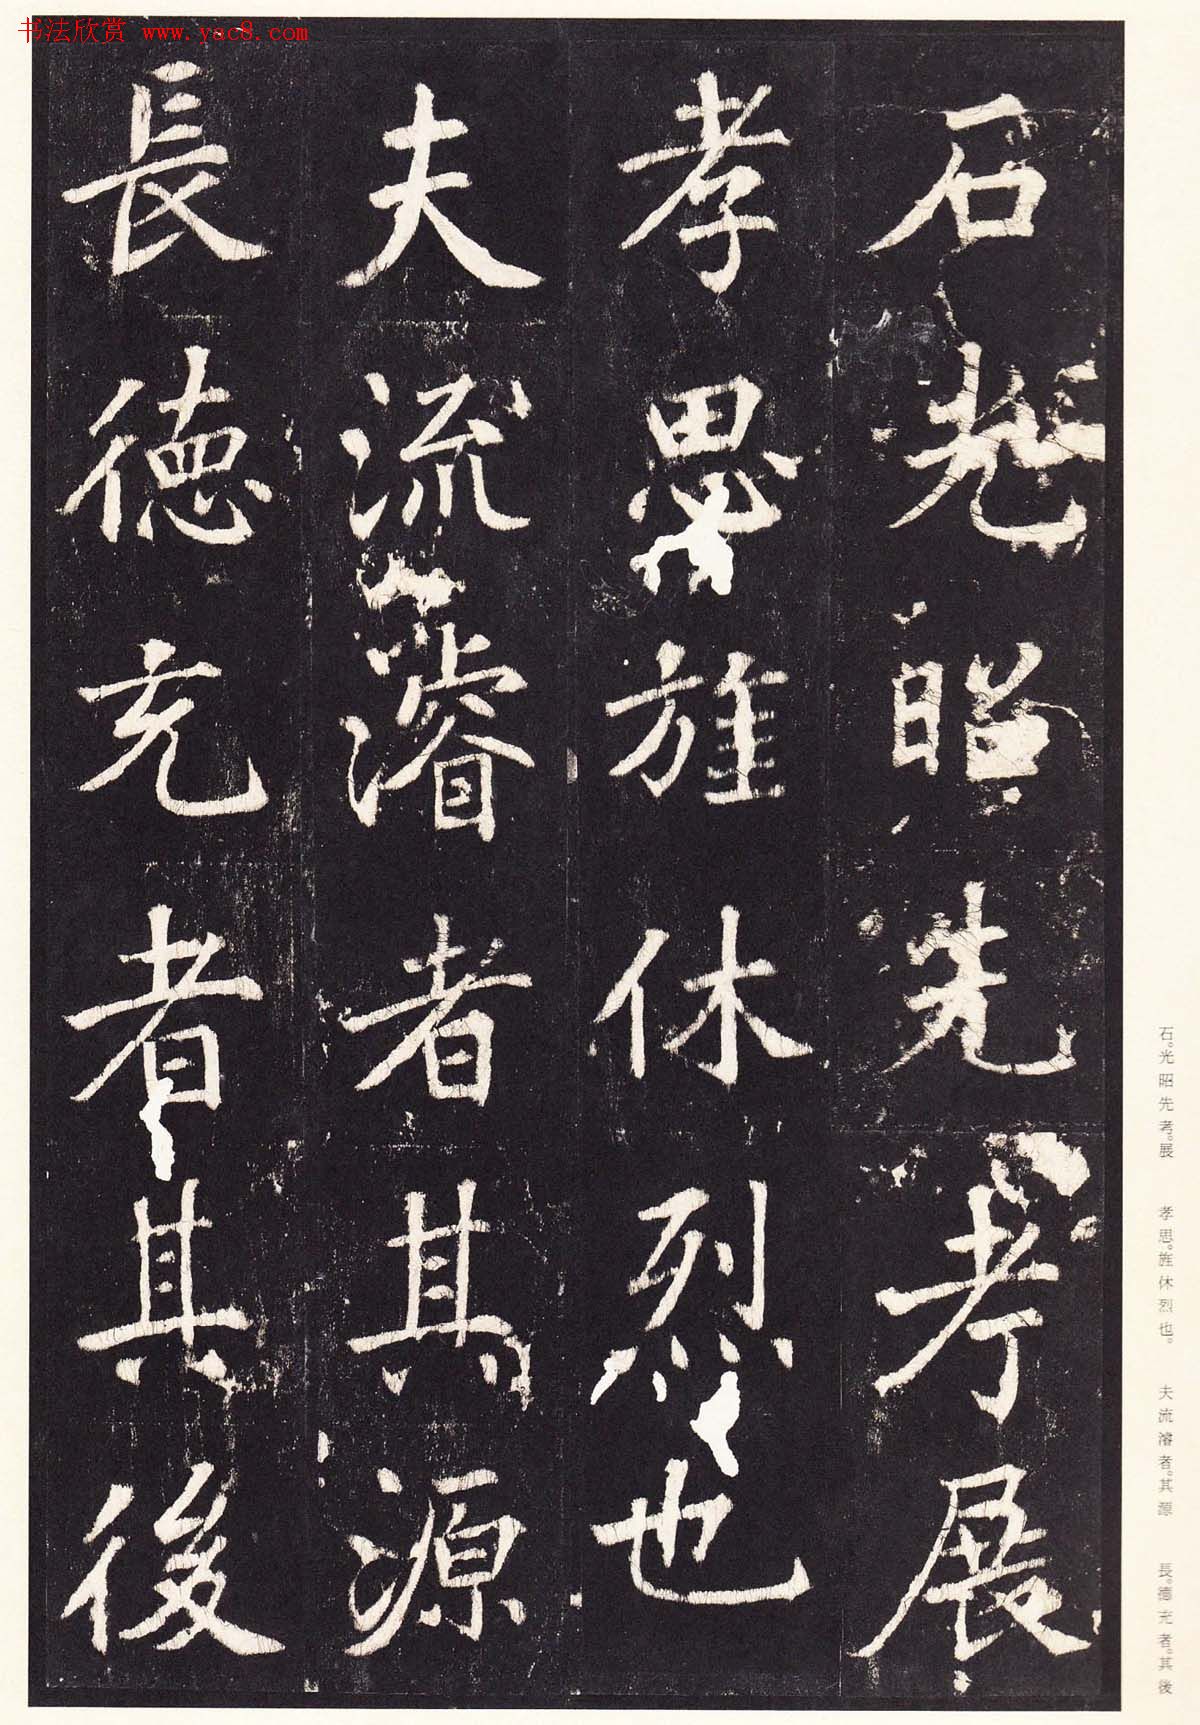 书法欣赏 www.yac8.com
石光昭先考展
孝思旌休烈也
夫流濬者其源
長德充者其後
石。光昭先考。展 孝思。旌休烈也。 夫流濬者。其源 長。德充者。其後